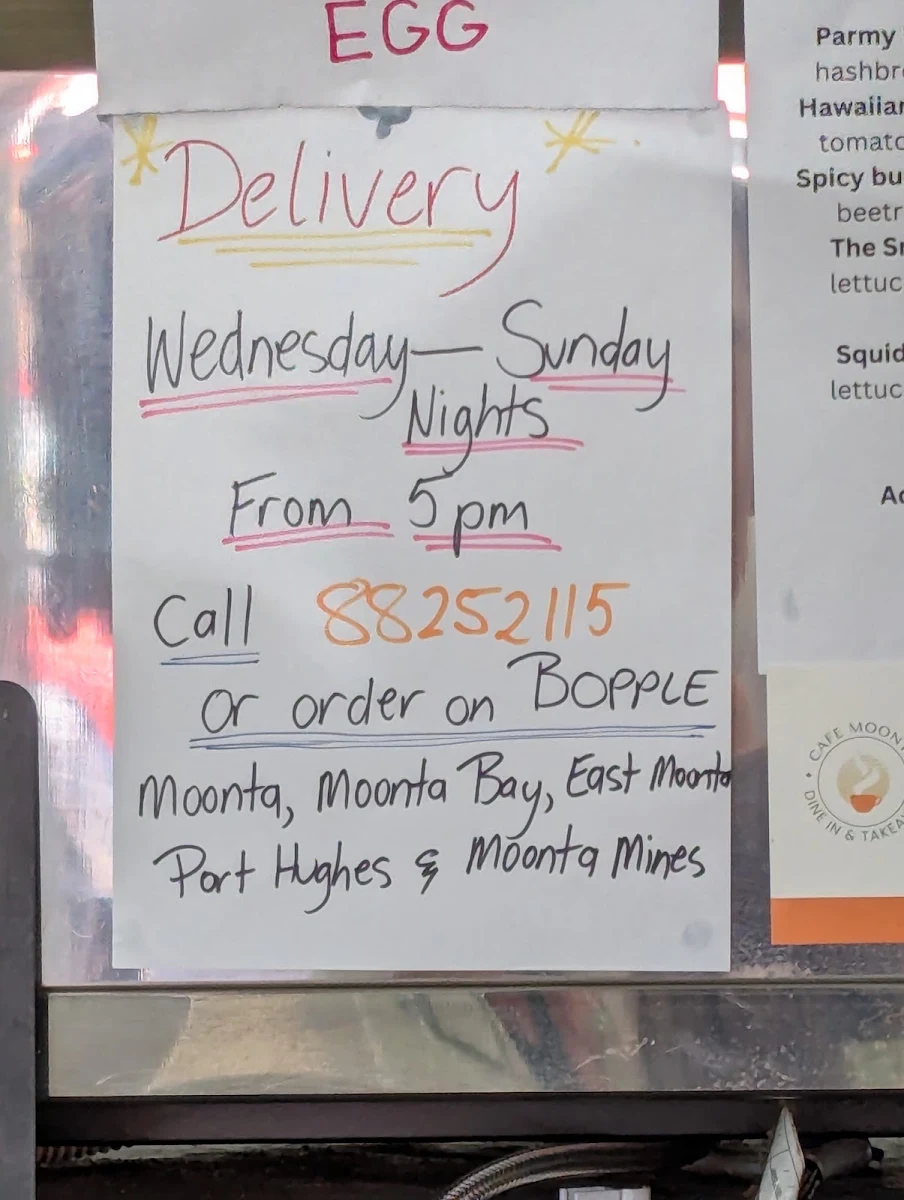 EGG
* Delivery *
Wednesday — Sunday
Nights
From 5pm
Call 88252115
or order on BOPPLE
Moonta, Moonta Bay, East Moonta
Port Hughes & Moonta Mines
Parmy
hashbr
Hawaiian
tomato
Spicy bu
beetr
The S
lettuc
Squid
lettuc
CAFE MOON
DINE IN & TAKEA